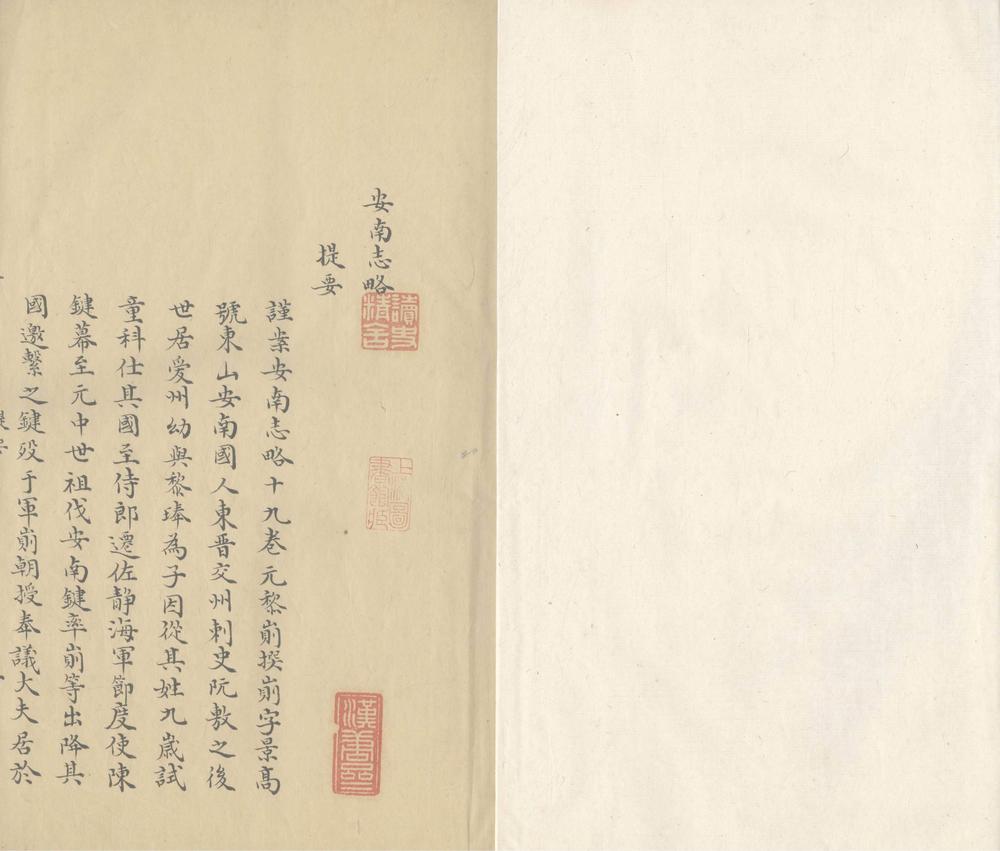 安南志略
提要
謹案安南志略十九卷元黎崱撰崱字景髙
號東山安南國人東晋交州刺史阮敷之後
世居愛州幼與黎琫為子因從其姓九嵗試
童科仕其國至侍郎遷佐静海軍節度使陳
鍵幕至元中世祖伐安南鍵率崱等出降其
國邀繫之鍵歿于軍崱朝授奉議大夫居於
讀史
精舍
上海圖
書館藏